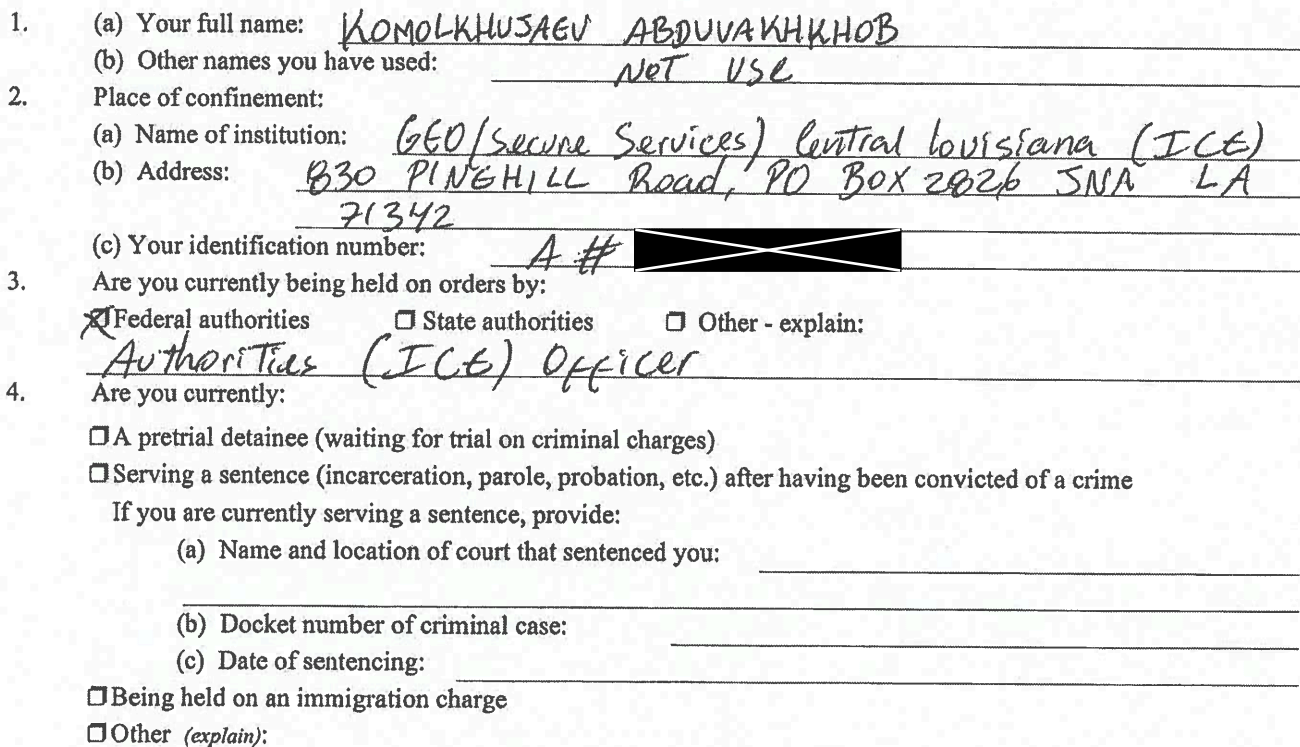 1. (a) Your full name: KOMOLKHUJAEV ABDUVAKHKHOB
(b) Other names you have used: NOT USE
2. Place of confinement:
(a) Name of institution: GEO/Secure Services) Central Louisiana (ICE)
(b) Address: 830 PINEHILL Road, PO BOX 2826 JNA LA
71342
(c) Your identification number: A #
3. Are you currently being held on orders by:
☒ Federal authorities ☐ State authorities ☐ Other - explain:
AuthoriTies (ICE) Officer
4. Are you currently:
☐ A pretrial detainee (waiting for trial on criminal charges)
☐ Serving a sentence (incarceration, parole, probation, etc.) after having been convicted of a crime
If you are currently serving a sentence, provide:
(a) Name and location of court that sentenced you:
(b) Docket number of criminal case:
(c) Date of sentencing:
☐ Being held on an immigration charge
☐ Other (explain):